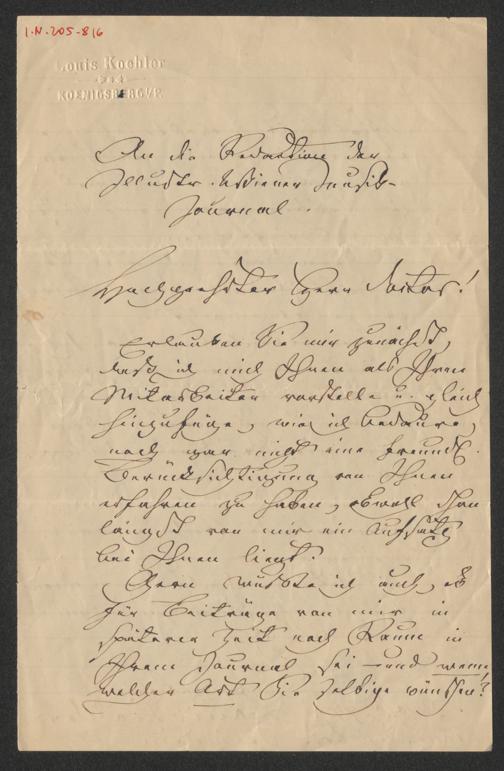 I.N. 205.816
Louis Koehler
KOENIGSBERG I/P.
An die Redaction der
Illustr. Wiener Musik-
Journal.
Hochgeehrter Herr Doctor!
Erlauben Sie mir zunächst,
dass ich mich Ihnen als Ihren
Mitarbeiter vorstelle u. gleich
hinzufüge, wie ich bedaure,
noch gar nicht eine freundl.
Berücksichtigung von Ihnen
erfahren zu haben, obwohl schon
längst von mir ein Aufsatz
bei Ihnen liegt.
Gern wüsste ich auch, ob
für Beiträge von mir in
späterer Zeit noch Raum in
Ihrem Journal sei – und wenn,
welcher Art Sie selbige wünschen?